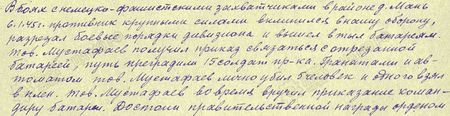 В боях с немецко-фашистскими захватчиками в районе д. Мань
6.1.45г. противник крупными силами вклинился в нашу оборону,
разрезал боевые порядки дивизиона и вышел в тыл батареям.
тов. Мустафаев получил приказ связаться с отрезанной
батареей, путь преградили 15 солдат пр-ка. Гранатами и ав-
томатом тов. Мустафаев лично убил 8 человек и одного взял
в плен. тов. Мустафаев во время вручил приказание коман-
диру батареи. Достоин правительственной награды орденом